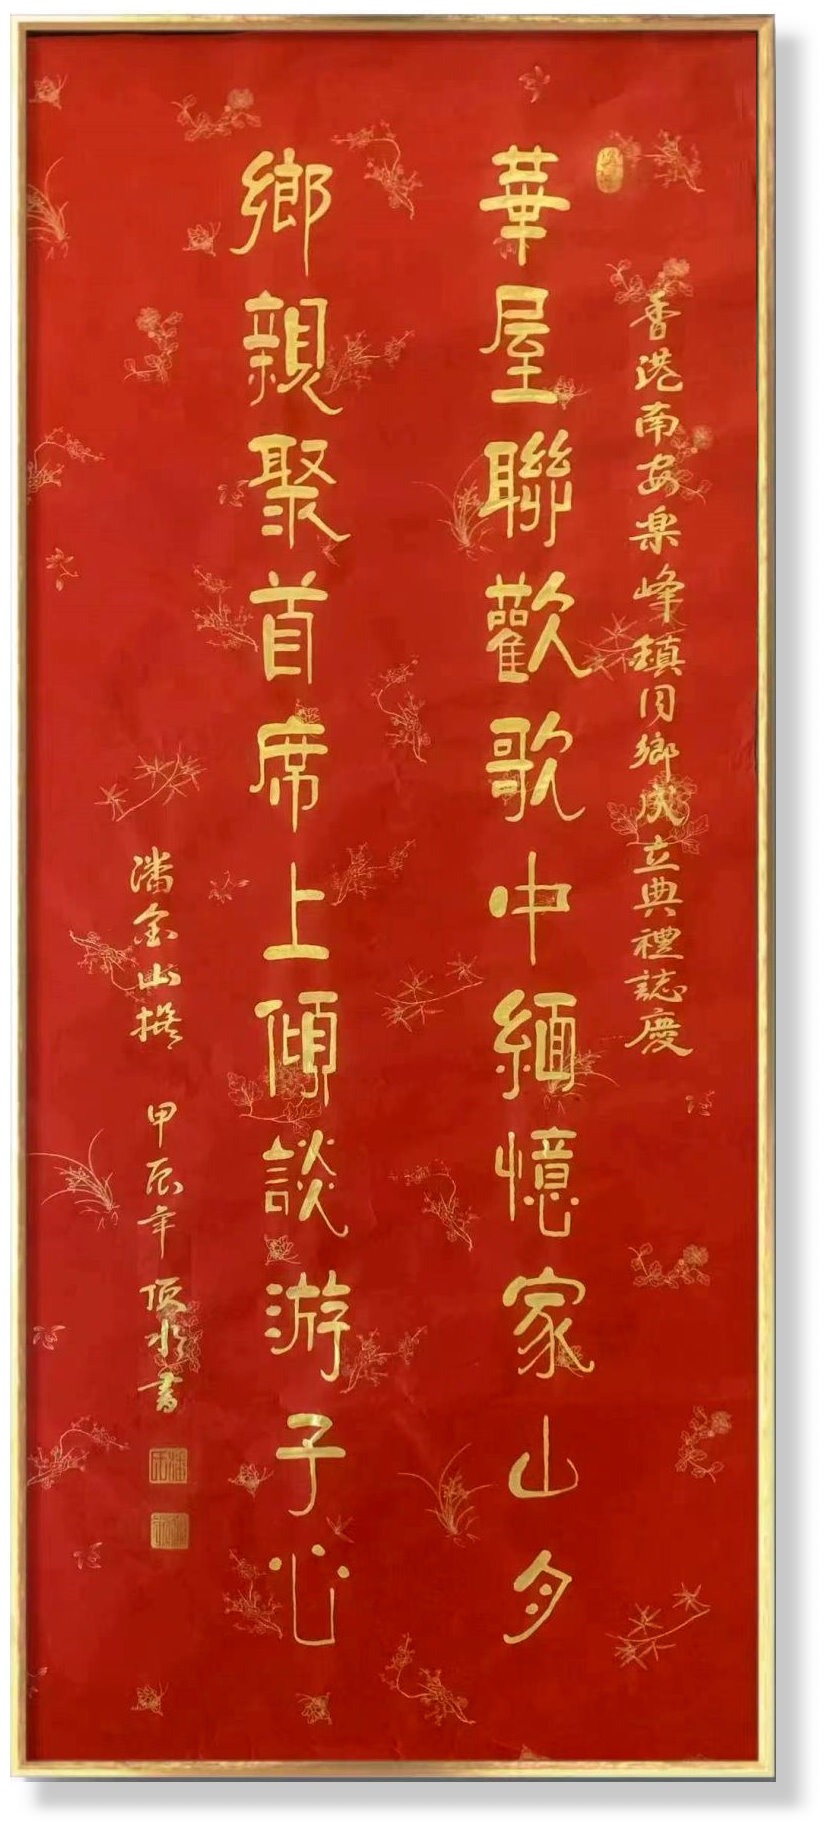 香港南安樂峰鎮同鄉成立典禮誌慶
華屋聯歡歌中緬憶家山月
鄉親聚首席上傾談游子心
潘金山撰 甲辰年 水書